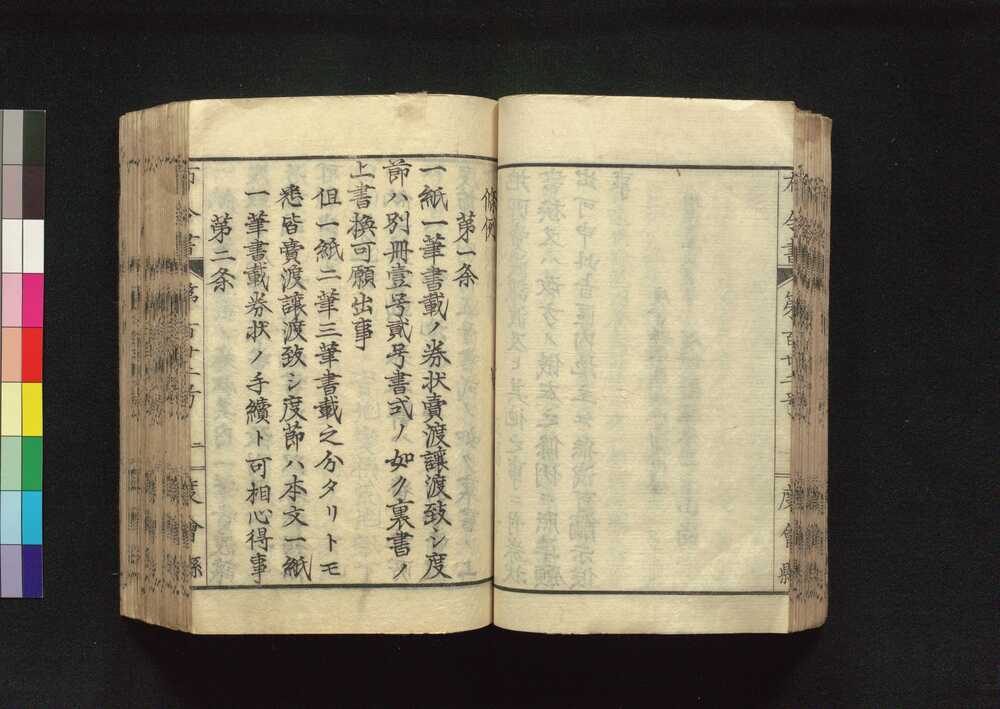 布令書 第百廿二号 度會縣
條例
第一条
一紙一筆書載ノ券状賣渡讓渡致シ度
節ハ別冊壹号貳号書式ノ如ク裏書ノ
上書換可願出事
但一紙二筆三筆書載之分タリトモ
悉皆賣渡讓渡致シ度節ハ本文一紙
一筆書載券状ノ手續ト可相心得事
第二条
布令書 第百廿二号 二 度會縣